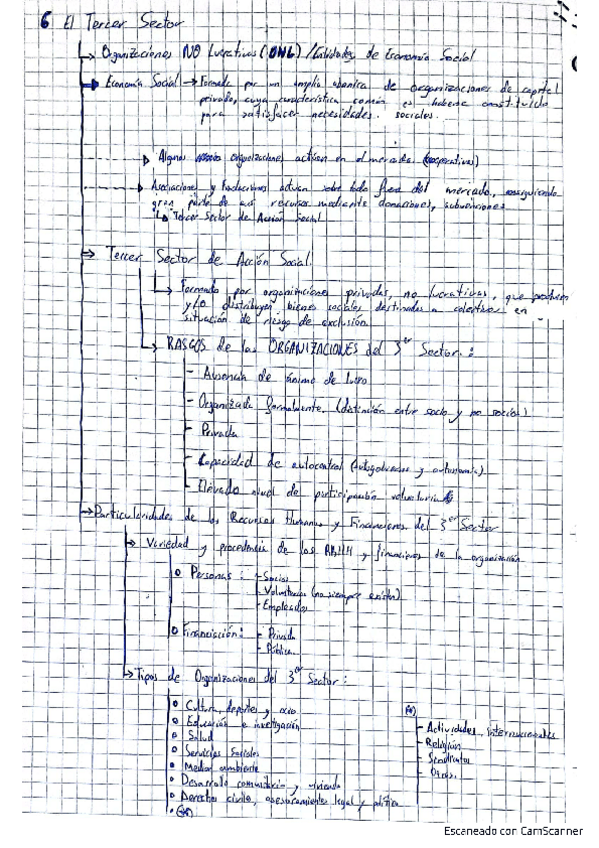 6 El Tercer Sector
↳ Organizaciones NO Lucrativas (ONG) / Entidades de Economía Social
→ Economía Social → Formada por un amplio abanico de organizaciones de capital
privado, cuya característica común es haberse constituido
para satisfacer necesidades sociales.
Algunas organizaciones actúan en el mercado. (cooperativas)
Asociaciones y Fundaciones actúan sobre todo fuera del mercado, consiguiendo
gran parte de sus recursos mediante donaciones, subvenciones
↳ Tercer Sector de Acción Social
⇒ Tercer Sector de Acción Social.
↳ Formado por organizaciones privadas, no lucrativas, que producen
y/o distribuyen bienes sociales destinados a colectivos en
situación de riesgo de exclusión.
↳ RASGOS de las ORGANIZACIONES del 3er Sector:
- Ausencia de ánimo de lucro
- Organizada formalmente. (distinción entre socio y no socios)
- Privada
- Capacidad de autocontrol (autogobierno y autonomía)
- Elevado nivel de participación voluntaria
→ Particularidades de los Recursos Humanos y Financieros del 3er Sector
→ Variedad y procedencia de los RRHH y financieros de la organización
o Personas: - Socios
- Voluntarios (no siempre existen)
- Empleados
o Financiación: - Privada
- Pública.
↳ Tipos de Organizaciones del 3er Sector:
o Cultura, deportes y ocio
o Educación e investigación
o Salud
o Servicios Sociales
o Medio ambiente
o Desarrollo comunitario y vivienda
o Derechos civiles, asesoramiento legal y política
o (*)
(*)
- Actividades internacionales
- Religión
- Sindicatos
- Otros.
Escaneado con CamScanner